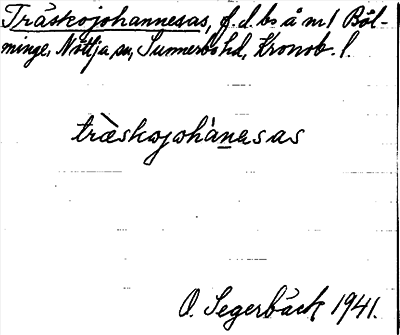 Träskojohannesas, f.d. bs å nr 1 Böl-
minge, Nöttja sn, Sunnerbo hd, Kronob. l.
træskojohànesas
O. Segerbäck 1941.